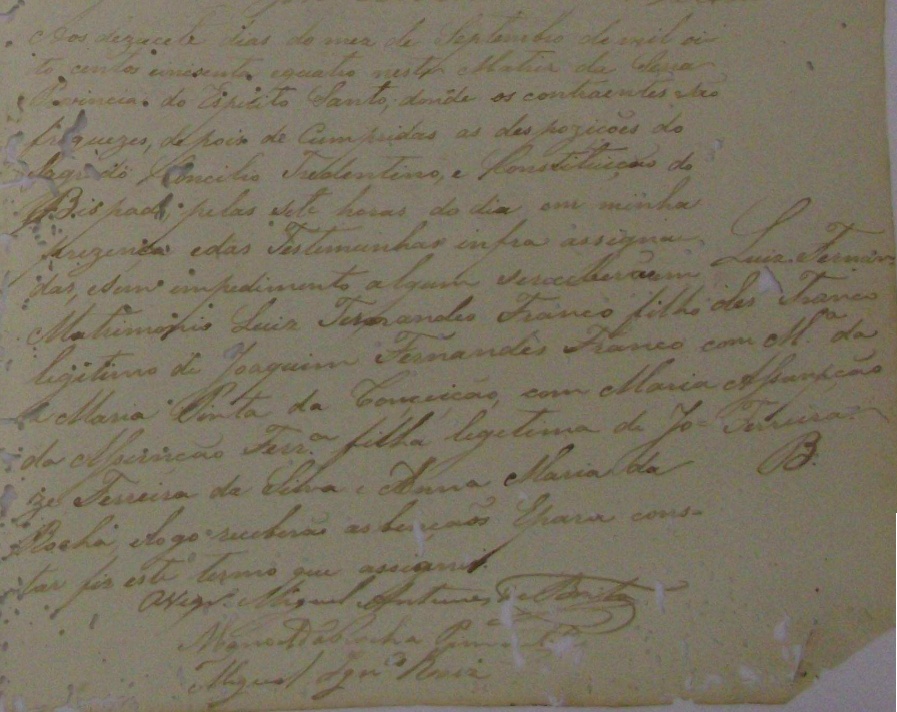 Aos dezacete dias do mez de Septembro de mil oi-
to centos esincoenta equatro nesta Matriz da Serra
Provincia do Espirito Santo, donde os contraentes são
freguezes, depois de Cumpridas as despozicões do
Sagrado Concilio Tredentino, e Constituição do
Bispado, pelas sete horas do dia em minha
prezença edas Testimunhas infra assigna
das, esem impedimento algum sereceberão em
Matrimonio Luiz Fernandes Franco filho
legitimo de Joaquim Fernandes Franco
e Maria Pinta da Conceição, com Maria
da Asumpcão Ferrª filha legetima de Jo-
ze Ferreira da Silva e Anna Maria da
Rocha, elogo receberão as bençaõs Epara cons-
tar fiz este termo que assignei.
Luiz Fernan-
des Franco
com Mª da
Assumpcão
Ferreira
B.
Vigrº Miguel Antunes de Brito
Manoel da Rocha Pimentel
Miguel Ignº